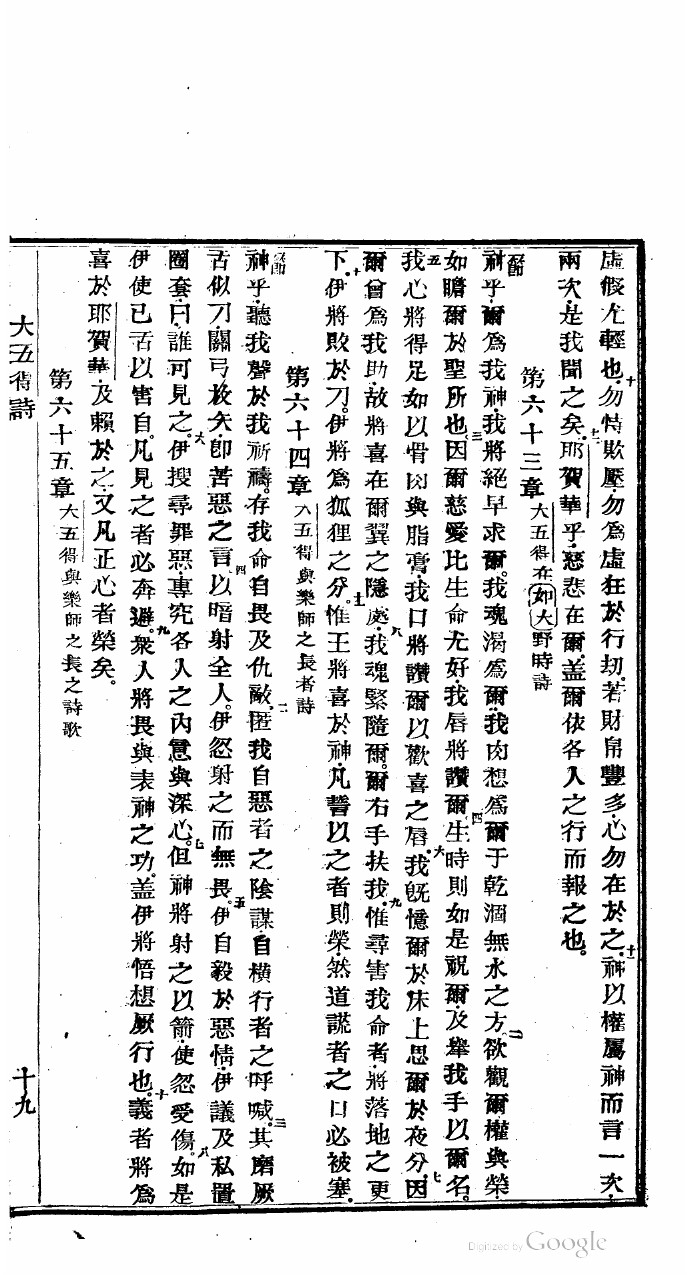 虛假尤輕也十勿恃欺壓勿爲虛狂於行刼若財帛豐多心勿在於之十一神以權屬神而言一次
兩次是我聞之矣十二耶賀華乎慈悲在爾蓋爾依各人之行而報之也
第六十三章 大五得在如大野時詩
神乎爾爲我神我將絕早求爾我魂渴爲爾我肉想爲爾于乾涸無水之方二欲觀爾權與榮
如瞻爾於聖所也三因爾慈愛比生命尤好我唇將讚爾四生時則如是祝爾及舉我手以爾名
五我心將得足如以骨肉與脂膏我口將讚爾以歡喜之唇六我旣憶爾於床上思爾於夜分七因
爾曾爲我助故將喜在爾翼之隱處八我魂緊隨爾爾右手扶我九惟尋害我命者將落地之更
下十伊將敗於刀伊將爲狐狸之分十一惟王將喜於神凡誓以之者則榮然道謊者之口必被塞
第六十四章 大五得與樂師之長者詩
神乎聽我聲於我祈禱存我命自畏及仇敵二匿我自惡者之陰謀自橫行者之呼喊三其磨厥
舌似刀關弓放矢卽苦惡之言四以暗射全人伊忽射之而無畏五伊自毅於惡情伊議及私置
圈套曰誰可見之六伊搜尋罪惡專究各人之內意與深心七但神將射之以箭使忽受傷八如是
伊使已舌以害自凡見之者必奔避九衆人將畏與表神之功蓋伊將悟想厥行也十義者將爲
喜於耶賀華及賴於之又凡正心者榮矣
第六十五章 大五得與樂師之長之詩歌
大五得詩 十九
Digitized by Google